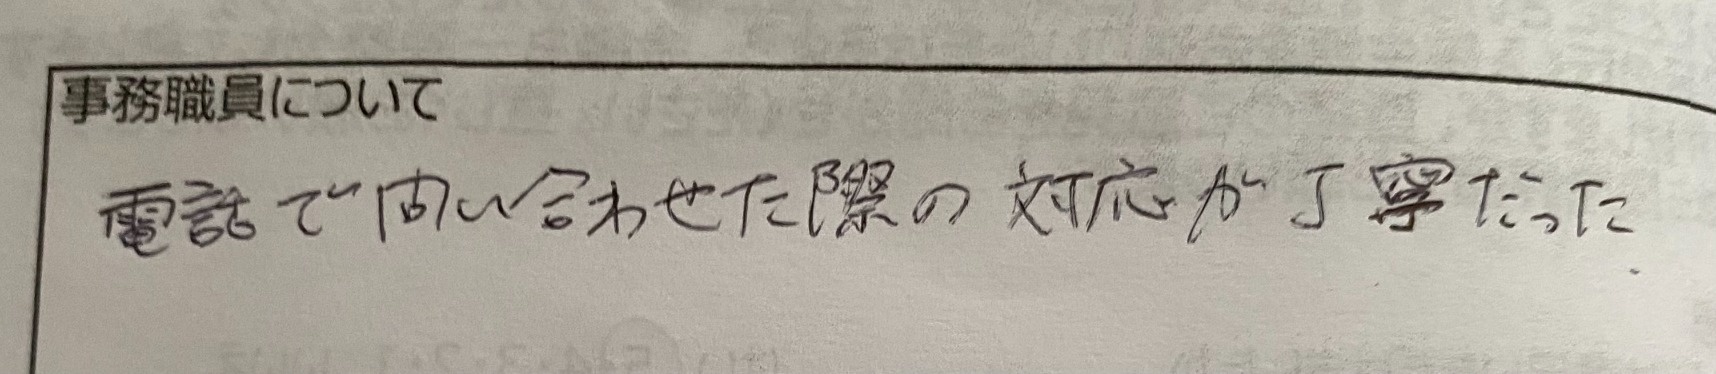 事務職員について
電話で問い合わせた際の対応が丁寧だった